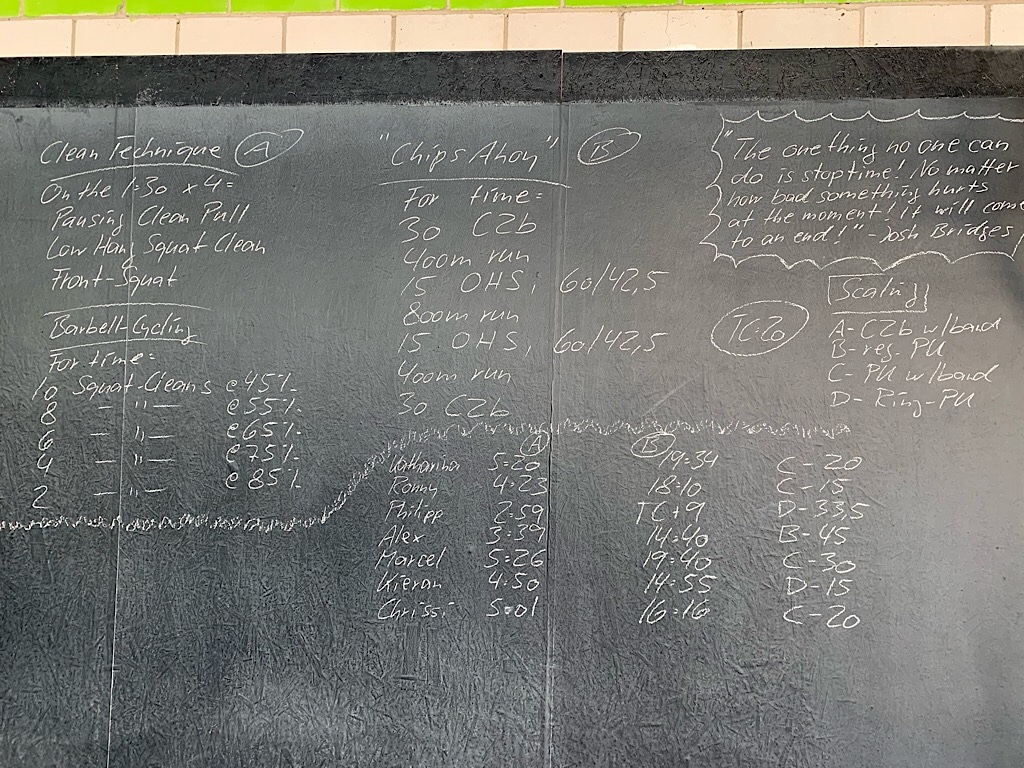 Clean Technique A
On the 1:30 x 4=
Pausing Clean Pull
Low Hang Squat Clean
Front-Squat
Barbell-Cycling
For time=
10 Squat-Cleans @ 45%
8 — " — @ 55%
6 — " — @ 65%
4 — " — @ 75%
2 — " — @ 85%
"Chips Ahoy" B
For time=
30 C2b
400m run
15 OHS, 60/42,5
800m run
15 OHS, 60/42,5
400m run
30 C2b
"The one thing no one can
do is stop time! No matter
how bad something hurts
at the moment! It will come
to an end!" - Josh Bridges
TC:20
Scaling
A- C2b w/band
B- reg. PU
C- PU w/band
D- Ring-PU
A B
Katharina 5:20 19:34 C-20
Ronny 4:23 18:10 C-15
Philipp 2:59 TC+9 D-33,5
Alex 3:39 14:40 B-45
Marcel 5:26 19:40 C-30
Kieran 4:50 14:55 D-15
Chrissi 5:01 16:16 C-20